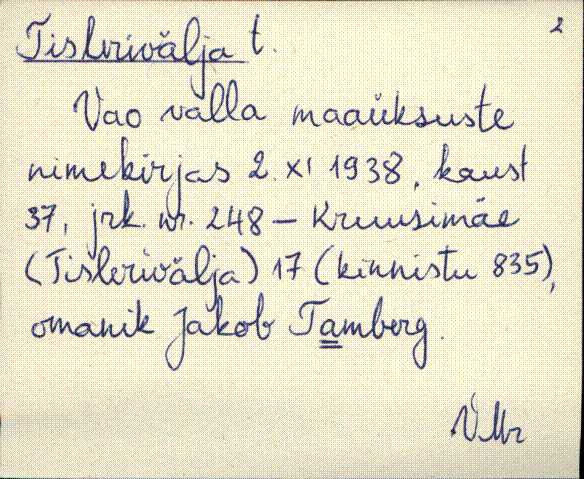 2
Tislerivälja t.
Vao valla maaüksuste
nimekirjas 2. XI 1938, kaust
37, jrk. nr. 248 – Kruusimäe
(Tislerivälja) 17 (kinnistu 835),
omanik Jakob Tamberg.
VMr